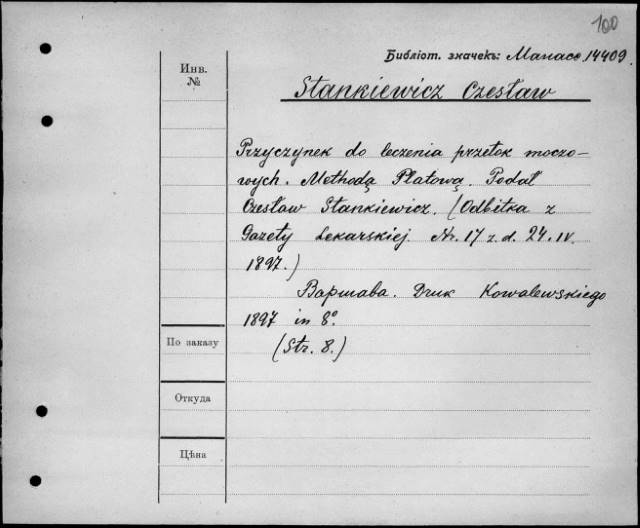 100
Библіот. значекъ: Manace 14409.
Инв.
№
Stankiewicz Czesław
Przyczynek do leczenia przetok moczo-
wych. Methodą Płatową. Podał
Czesław Stankiewicz. (Odbitka z
Gazety Lekarskiej Nr. 17 z. d. 24. IV.
1897.)
Варшава. Druk Kowalewskiego
1897 in 8º
(Str. 8.)
По заказу
Откуда
Цѣна